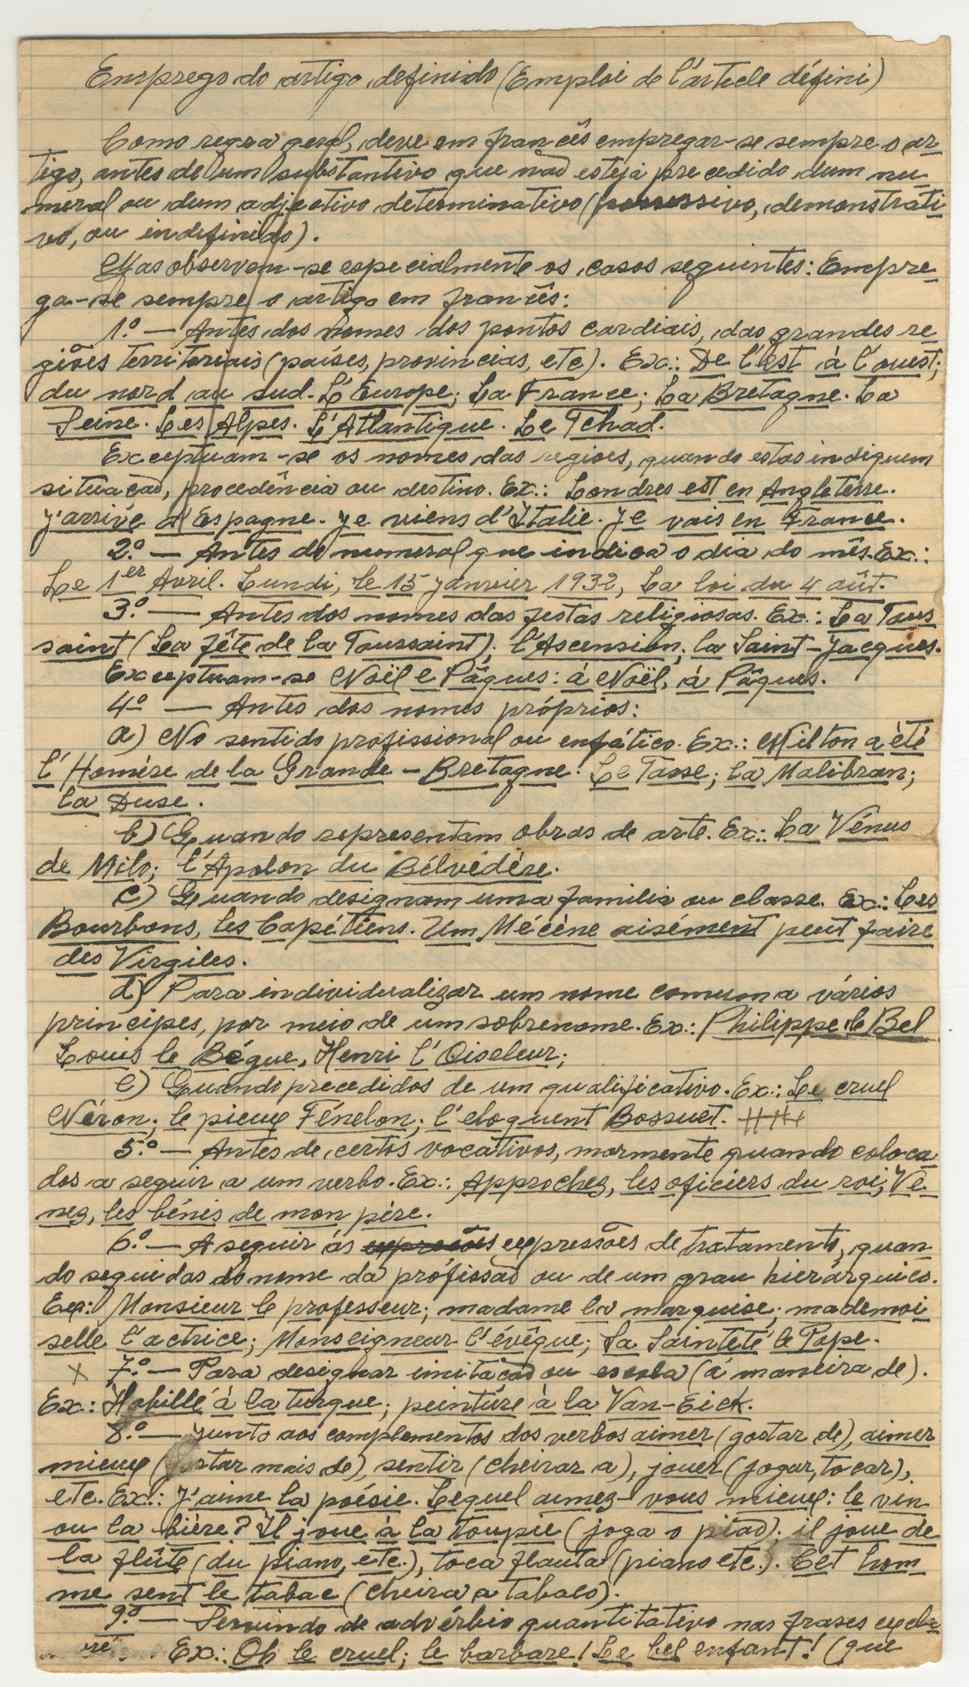 Emprego do artigo definido (Emploi de l'article défini)
Como regra geral, deve em francês empregar-se sempre o ar-
tigo, antes de um substantivo que não esteja precedido dum nu-
meral ou dum adjectivo determinativo (possessivo, demonstrati-
vo, ou indefinido).
Mas observem-se especialmente os casos seguintes: Empre-
ga-se sempre o artigo em francês:
1.º — Antes dos nomes dos pontos cardiais, das grandes re-
giões territoriais (países, provincias, etc). Ex.: De l'Est à l'ouest;
du nord au sud. L'Europe; La France; La Bretagne. La
Seine. Les Alpes. L'Atlantique. Le Tchad.
Exceptuam-se os nomes das regioes, quando estas indiquem
situação, procedência ou destino. Ex.: Londres est en Angleterre.
J'arrive d'Espagne. Je viens d'Italie. Je vais en France.
2.º — Antes do numeral que indica o dia do mês. Ex.:
Le 1er Avril. Lundi, le 15 Janvier 1932, La loi du 4 aût.
3.º — Antes dos nomes das festas religiosas. Ex.: La Tous
saint (La fête de la Toussaint). l'Ascension, la Saint-Jacques.
Exceptuam-se Noël e Pâques: à Noël, à Pâques.
4º — Antes dos nomes próprios:
a) No sentido profissional ou enfático. Ex.: Milton a été
l'Homère de la Grande-Bretagne. Le Tasse; la Malibran;
la Duse.
b) Quando representam obras de arte. Ex.: La Vénus
de Milo; l'Apolon du Bélvédère.
c) Quando designam uma familia ou classe. Ex.: Les
Bourbons, les Capétiens. Um Mécène aisément peut faire
des Virgiles.
d) Para individualizar um nome comum a vários
principes, por meio de um sobrenome. Ex.: Philippe le Bel
Louis le Bégue, Henri l'Oiseleur;
e) Quando precedidos de um qualificativo. Ex.: Le cruel
Néron; le pieux Fénelon; l'eloquent Bossuet.
5.º — Antes de certos vocativos, mormente quando coloca
dos a seguir a um verbo. Ex.: Approchez, les oficiers du roi; Ve-
nez, les bénis de mon père.
6.º — A seguir ás expressões de tratamento, quan-
do seguidas do nome da profissão ou de um grau hierárquico.
Ex: Monsieur le professeur; madame la marquise; mademoi
selle l'actrice; Monseigneur l'évêque; Sa Sainteté le Pape.
x 7.º — Para designar imitação ou escola (à maneira de).
Ex.: Habillé à la turque; peintûre à la Van-Eick.
8.º — Junto aos complementos dos verbos aimer (gostar de), aimer
mieux (gostar mais de), sentir (cheirar a), jouer (jogar, tocar),
etc. Ex.: J'aime la poésie. Lequel aimez-vous mieux: le vin
ou la bière? Il joue à la toupie (joga o pião). il joue de
la flûte (du piano, etc.), toca flauta (piano etc.). Cet hom-
me sent le tabac (cheira a tabaco).
9º — Servindo de advérbio quantitativo nas frases
Ex.: Oh le cruel; le barbare! Le bel enfant! (que